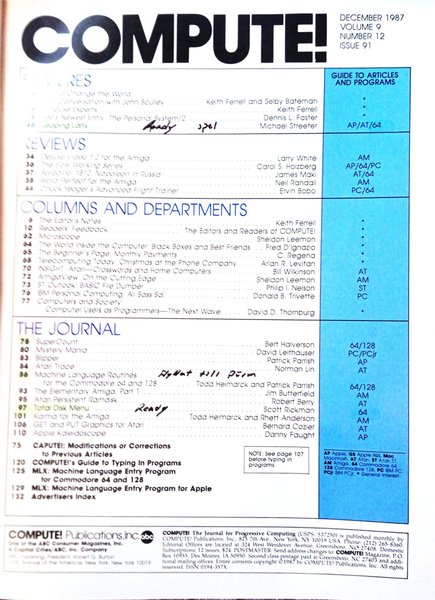 COMPUTE!
DECEMBER 1987
VOLUME 9
NUMBER 12
ISSUE 91
GUIDE TO ARTICLES
AND PROGRAMS
Change the World
Conversation with John Sculley Keith Ferrell and Selby Bateman *
Experts Keith Ferrell *
Newest Entry: The Personal System/2 Dennis L. Foster *
Leaping Larry Ready spel Michael Streeter AP/AT/64
REVIEWS
34 Deluxe Video 1.2 for the Amiga Larry White AM
36 The Lost Working Series Carol S. Holzberg AP/64/PC
37 Borodino: 1812, Napoleon in Russia James Maki AT/64
38 Word Perfect for the Amiga Neil Randall AM
44 Chuck Yeager's Advanced Flight Trainer Ervin Bobo PC/64
COLUMNS AND DEPARTMENTS
6 The Editor's Notes Keith Ferrell *
10 Readers' Feedback The Editors and Readers of COMPUTE! *
62 Microscope Sheldon Leemon *
64 The World Inside the Computer: Black Boxes and Best Friends Fred D'Ignazio *
65 The Beginner's Page: Monthly Payments C. Regena *
68 Telecomputing Today: Christmas at the Phone Company Arlan R. Levitan *
70 INSIGHT: Atari—Crosswords and Home Computers Bill Wilkinson AT
72 AmigaView: On the Cutting Edge Sheldon Leemon AM
73 ST Outlook: BASIC File Dumper Philip I. Nelson ST
76 IBM Personal Computing: All Sass Donald B. Trivette PC
77 Computers and Society
Computer Users as Programmers—The Next Wave David D. Thornburg *
THE JOURNAL
78 SuperCount Bert Halverson 64/128
80 Mystery Mania David Leithauser PC/PCjr
83 Blipper Patrick Parrish AP
84 Atari Trace Norman Lin AT
86 Machine Language Routines
for the Commodore 64 and 128 Todd Heimarck and Patrick Parrish 64/128
93 The Elementary Amiga, Part 1 Jim Butterfield AM
95 Atari Persistent Ramdisk Robert Berry AT
97 Total Disk Menu Ready Scott Rickman 64
101 Karma for the Amiga Todd Heimarck and Rhett Anderson AM
106 GET and PUT Graphics for Atari Bernard Cozier AT
110 Apple Kaleidoscope Danny Faught AP
75 CAPUTE! Modifications or Corrections
to Previous Articles
120 COMPUTE!'s Guide to Typing In Programs
125 MLX: Machine Language Entry Program
for Commodore 64 and 128
129 MLX: Machine Language Entry Program for Apple
132 Advertisers Index
NOTE: See page 107
before typing in
programs.
AP Apple, GS Apple IIGS, Mac
Macintosh, AT Atari, ST Atari ST,
AM Amiga, 64 Commodore 64,
128 Commodore 128, PC IBM PC,
PCjr IBM PCjr, * General Interest
COMPUTE! Publications, Inc. abc
One of the ABC Consumer Magazines, Inc.
A Capital Cities/ABC, Inc. Company
Avenue of the Americas, New York, New York 10019
COMPUTE! The Journal for Progressive Computing (USPS: 537250) is published monthly by
COMPUTE! Publications, Inc., 825 7th Ave., New York, NY 10019 USA. Phone: (212) 265-8360.
Editorial Offices are located at 324 West Wendover Avenue, Greensboro, NC 27408. Domestic
Subscriptions: 12 issues, $24. POSTMASTER: Send address changes to: COMPUTE! Magazine, P.O.
Box 10955, Des Moines, IA 50950. Second class postage paid at Greensboro, NC 27403 and addi-
tional mailing offices. Entire contents copyright ©1987 by COMPUTE! Publications, Inc. All rights
reserved. ISSN 0194-357X.